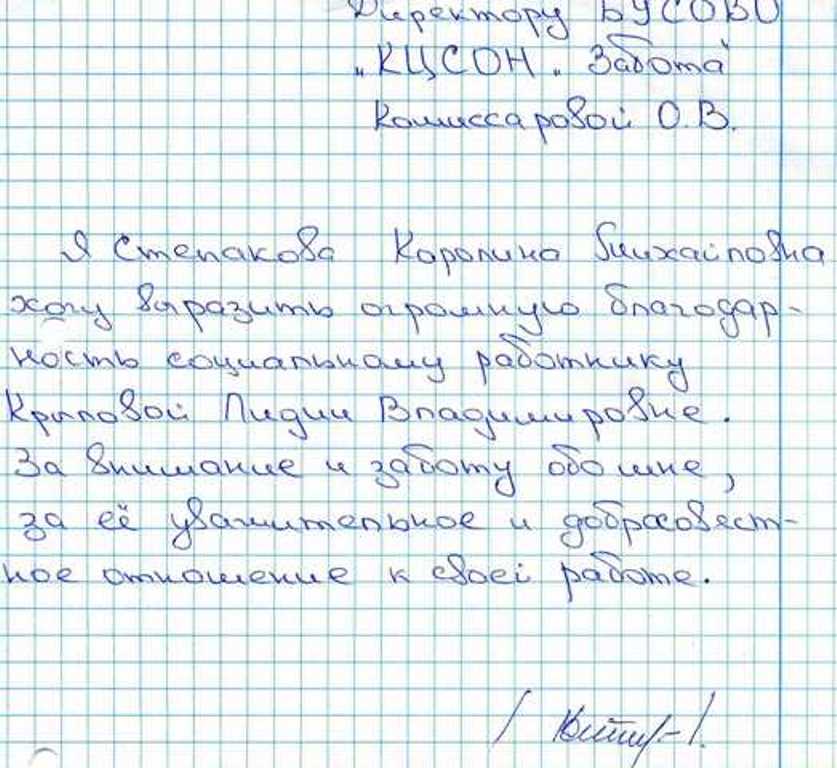 Директору БУСОВО
"КЦСОН "Забота"
Комиссаровой О.В.
Я Степакова Каролина Михайловна
хочу выразить огромную благодар-
ность социальному работнику
Крыловой Лидии Владимировне.
За внимание и заботу обо мне,
за её уважительное и добросовест-
ное отношение к своей работе.